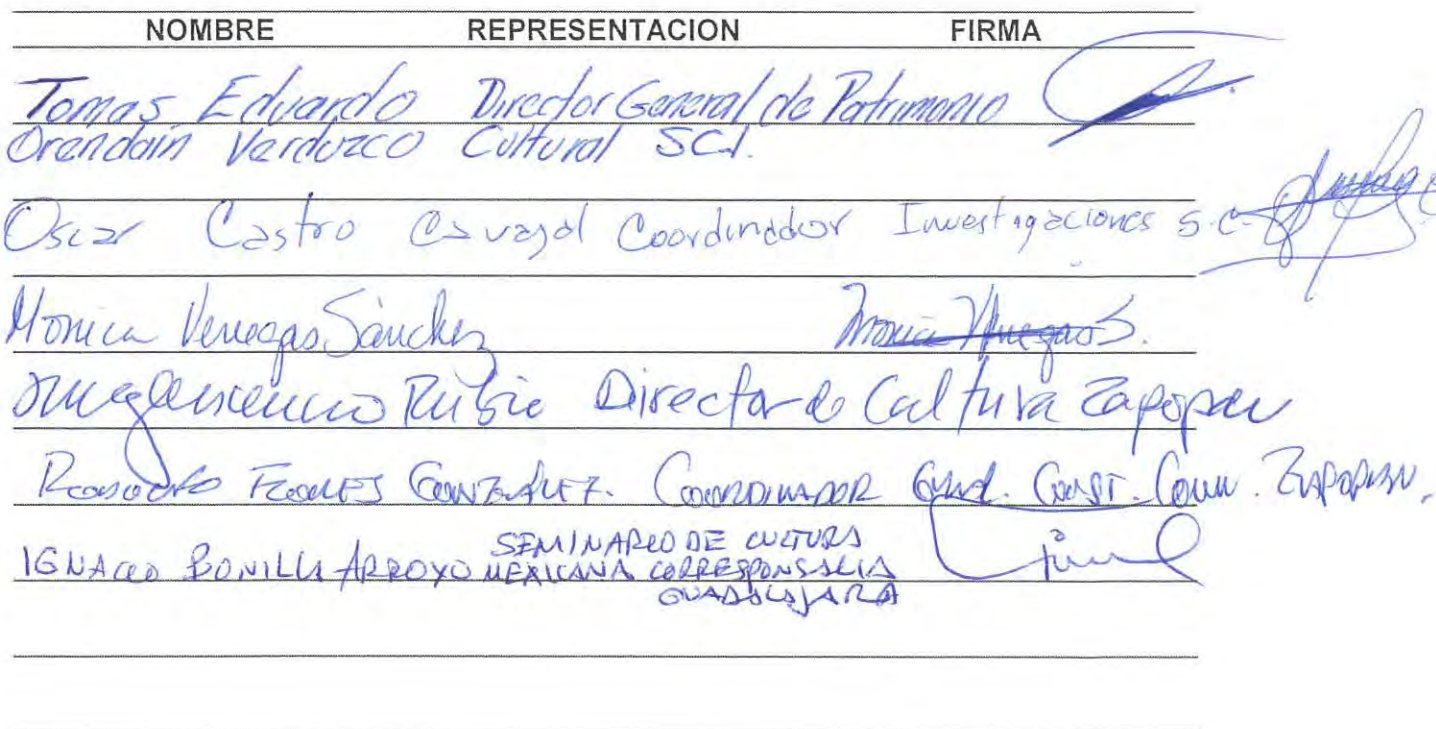 NOMBRE REPRESENTACION FIRMA
Tomas Eduardo Director General de Patrimonio
Orendain Verduzco Cultural SCJ.
Oscar Castro Carvajal Coordinador Investigaciones S.C.
Monica Venegas Sánchez Monica Venegas S.
Rubio Director de Cultura Zapopan
GONZALEZ. COORDINADOR GRAL. CONST. COMU. ZAPOPAN.
IGNACIO BONILLA ARROYO SEMINARIO DE CULTURA
MEXICANA CORRESPONSALIA
GUADALAJARA